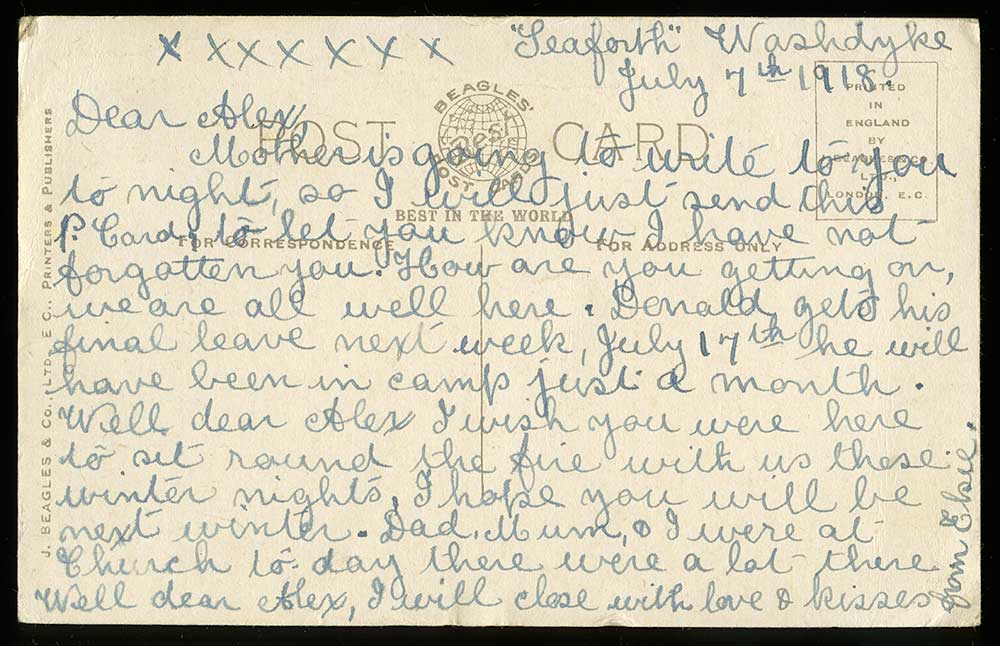 x x x x x x x
"Seaforth" Washdyke
July 7th 1918.
Dear Alex,
Mother is going to write to you
to night, so I will just send this
P. Card, to let you know I have not
forgotten you. How are you getting on,
we are all well here. Donald gets his
final leave next week, July 17th he will
have been in camp just a month.
Well dear Alex I wish you were here
to sit round the fire with us these
winter nights, I hope you will be
next winter. Dad, Mum, & I were at
Church to-day there were a lot there
Well dear Alex, I will close with love & kisses
from Elsie.
POST CARD
BEAGLES'
Best
POST CARDS
BEST IN THE WORLD
FOR CORRESPONDENCE
FOR ADDRESS ONLY
PRINTED
IN
ENGLAND
BY
BEAGLES & CO.
LTD.,
LONDON. E.C.
J. BEAGLES & CO., LTD., E.C., PRINTERS & PUBLISHERS